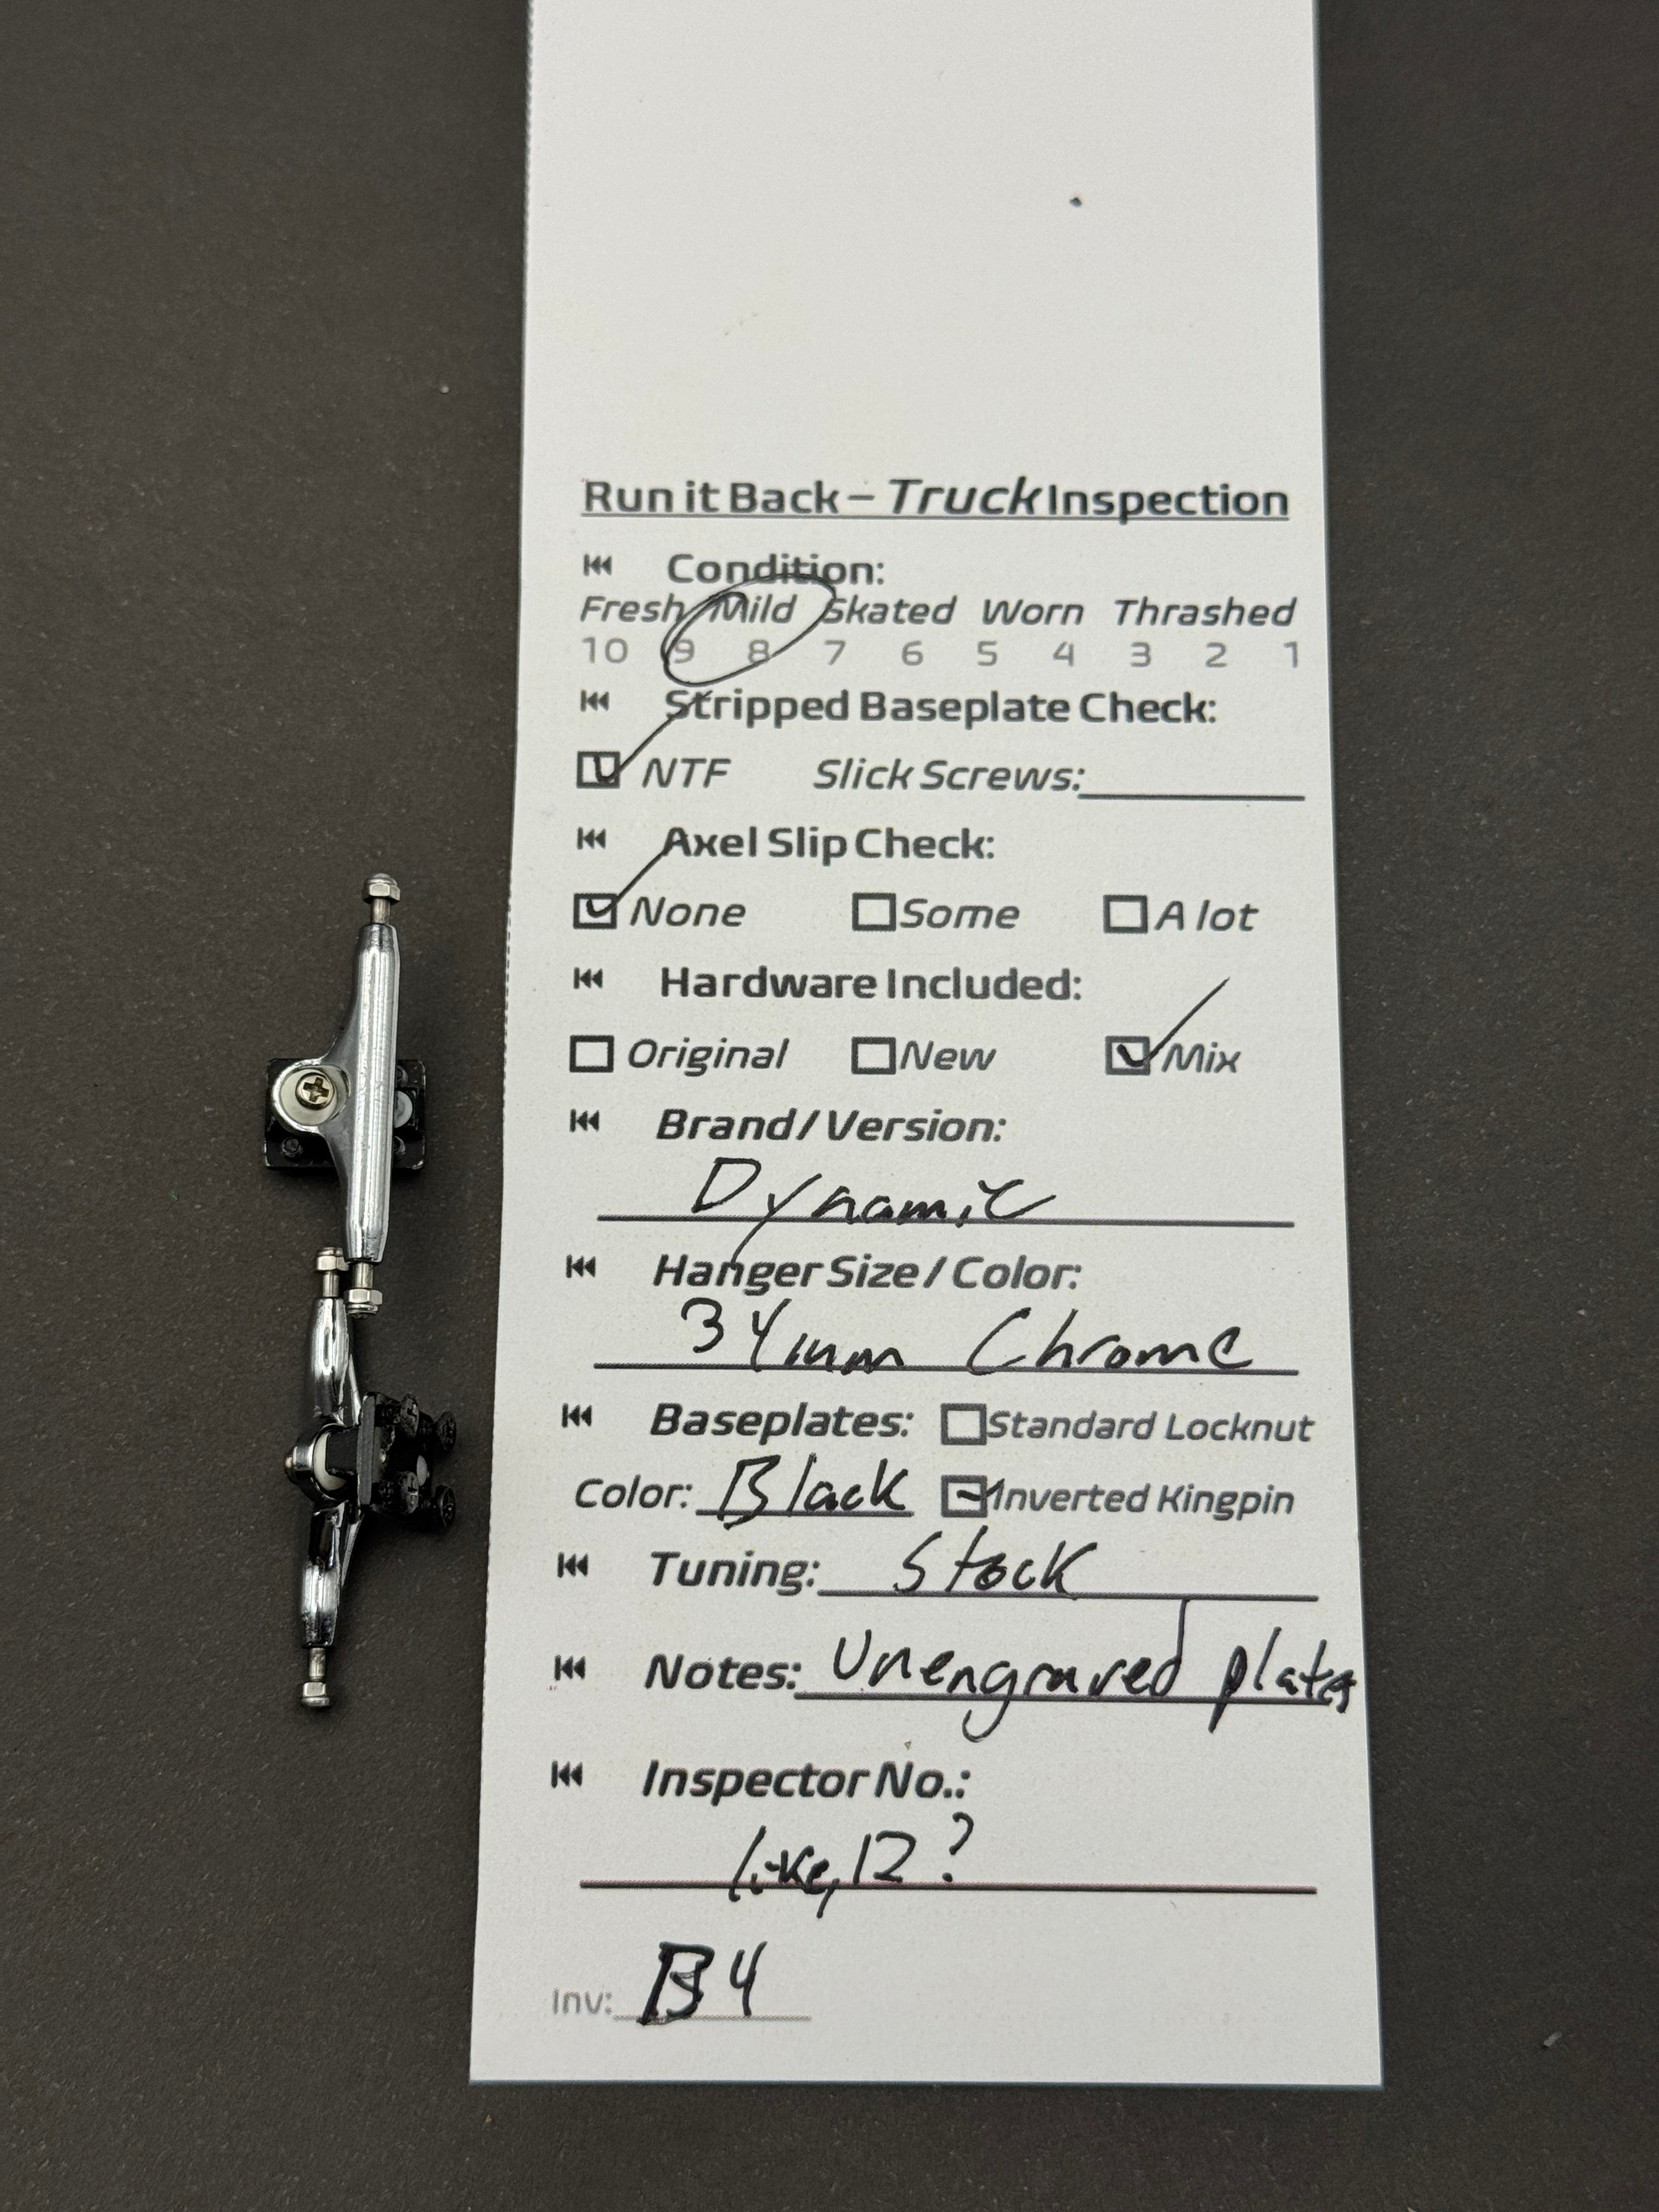 Run it Back – Truck Inspection
Condition:
Fresh Mild Skated Worn Thrashed
10 9 8 7 6 5 4 3 2 1
Stripped Baseplate Check:
NTF Slick Screws:
Axel Slip Check:
None Some A lot
Hardware Included:
Original New Mix
Brand / Version:
Dynamic
Hanger Size / Color:
34mm Chrome
Baseplates: Standard Locknut
Color: Black Inverted Kingpin
Tuning: Stock
Notes: Unengraved plates
Inspector No.:
like, 12?
Inv: B4